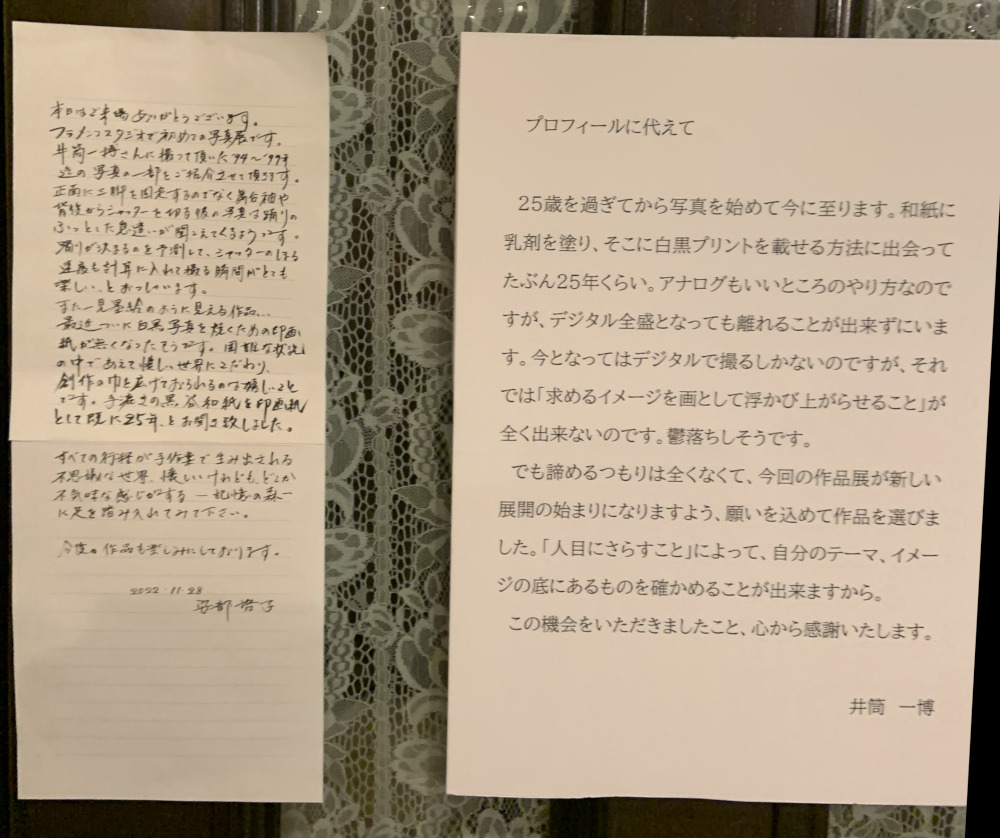 本日はご来場ありがとうございます。
フラメンコスタジオで初めての写真展です。
井筒一博さんに撮って頂いた'94〜'99年
迄の写真の一部をご紹介させて頂きます。
正面に三脚を固定するのでなく舞台袖や
背後からシャッターを切る彼の写真は踊りの
ふっとした息遣いが聞こえてくるようです。
踊りが決まるのを予測して、シャッターのしまる
速度も計算に入れて撮る瞬間がとても
楽しい、とおっしゃいます。
また一見墨絵のように見える作品...
最近ついに白黒写真を焼くための印画
紙が無くなったそうです。困難な状況
の中であえて懐しい世界にこだわり、
創作の巾を広げておられるのは嬉しいこと
です。手漉きの黒谷和紙を印画紙
として既に25年、とお聞き致しました。
すべての行程が手作業で生み出される
不思議な世界、懐しいけれども、どこか
不気味な感じがする — 記憶の森 —
に足を踏み入れてみて下さい。
今後の作品も楽しみにしております。
2022.11.28
プロフィールに代えて
25歳を過ぎてから写真を始めて今に至ります。和紙に
乳剤を塗り、そこに白黒プリントを載せる方法に出会って
たぶん25年くらい。アナログもいいところのやり方なので
すが、デジタル全盛となっても離れることが出来ずにいま
す。今となってはデジタルで撮るしかないのですが、それ
では「求めるイメージを画として浮かび上がらせること」が
全く出来ないのです。鬱落ちしそうです。
でも諦めるつもりは全くなくて、今回の作品展が新しい
展開の始まりになりますよう、願いを込めて作品を選びま
した。「人目にさらすこと」によって、自分のテーマ、イメー
ジの底にあるものを確かめることが出来ますから。
この機会をいただきましたこと、心から感謝いたします。
井筒 一博